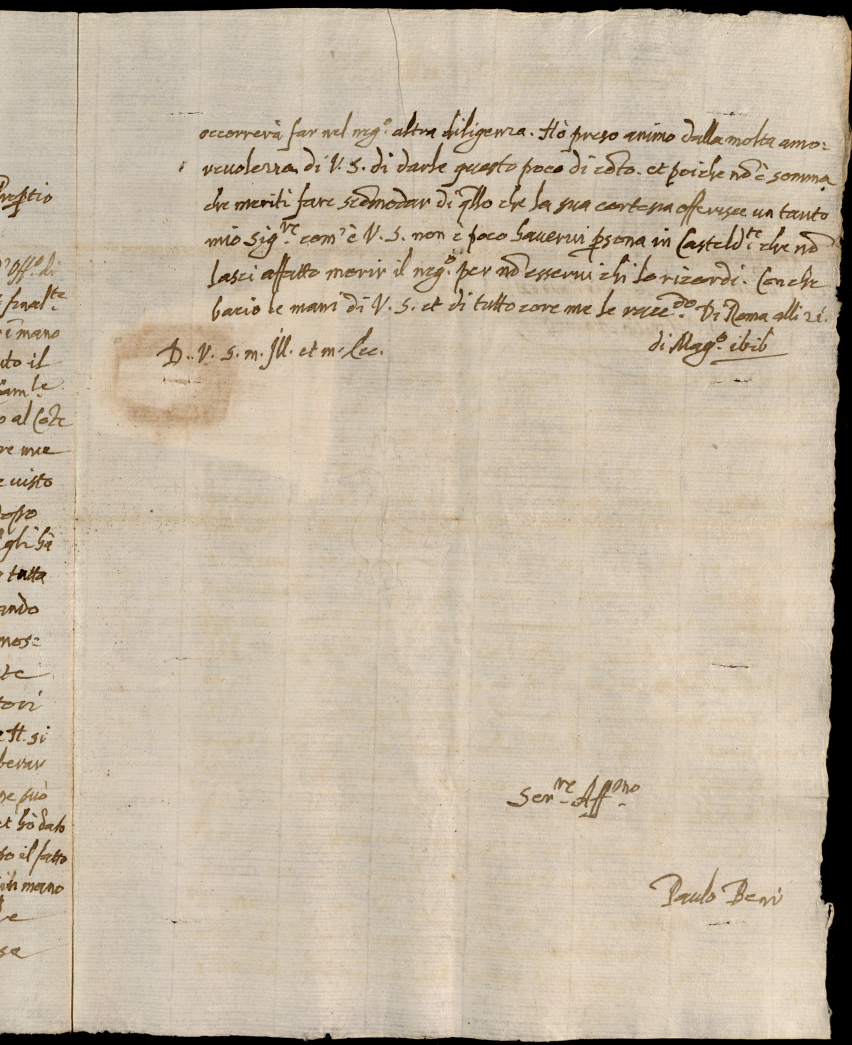 occorrerà far nel neg.o altra diligenza. Hò preso animo dalla molta amo=
revolezza di V. S. di darle questo poco di cōto. et poiche nō è somma
che meriti fare scōmodar di q̄llo che la sua cortesia offerisce un tanto
mio Sig.re com'è V. S. non è poco haverui p̱sona in Casteld.te che nō
lasci affatto morir il neg.o per nō esserui chi lo ricordi. Con che
bacio le mani di V. S. et di tutto core me le racc.do Di Roma alli 21.
di Mag.o
D. V. S. m. Ill. et m.
Ser.re Aff.mo
Paulo Beni
ñ Off.o di
final.te
mano
il
o al
re mie
e visto
dopo
egli hà
tutta
ando
mose
te
tori
e H. si
berar
ne può
et hò dato
so il fatto
in mano